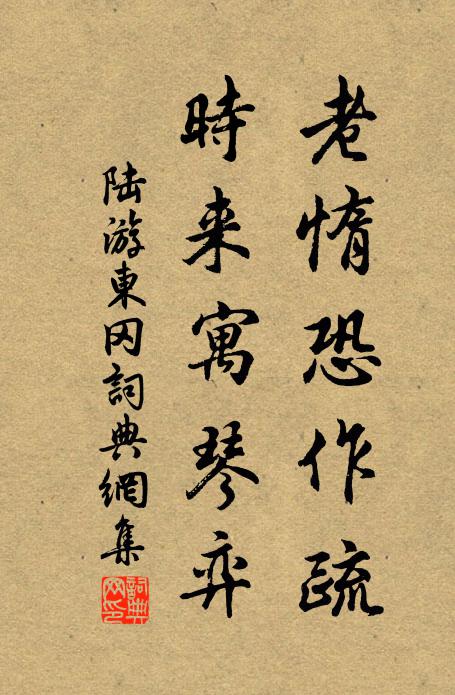 老惰恐作疏
時来寓琴弈
陆游東冈詞典網集
詞典网印